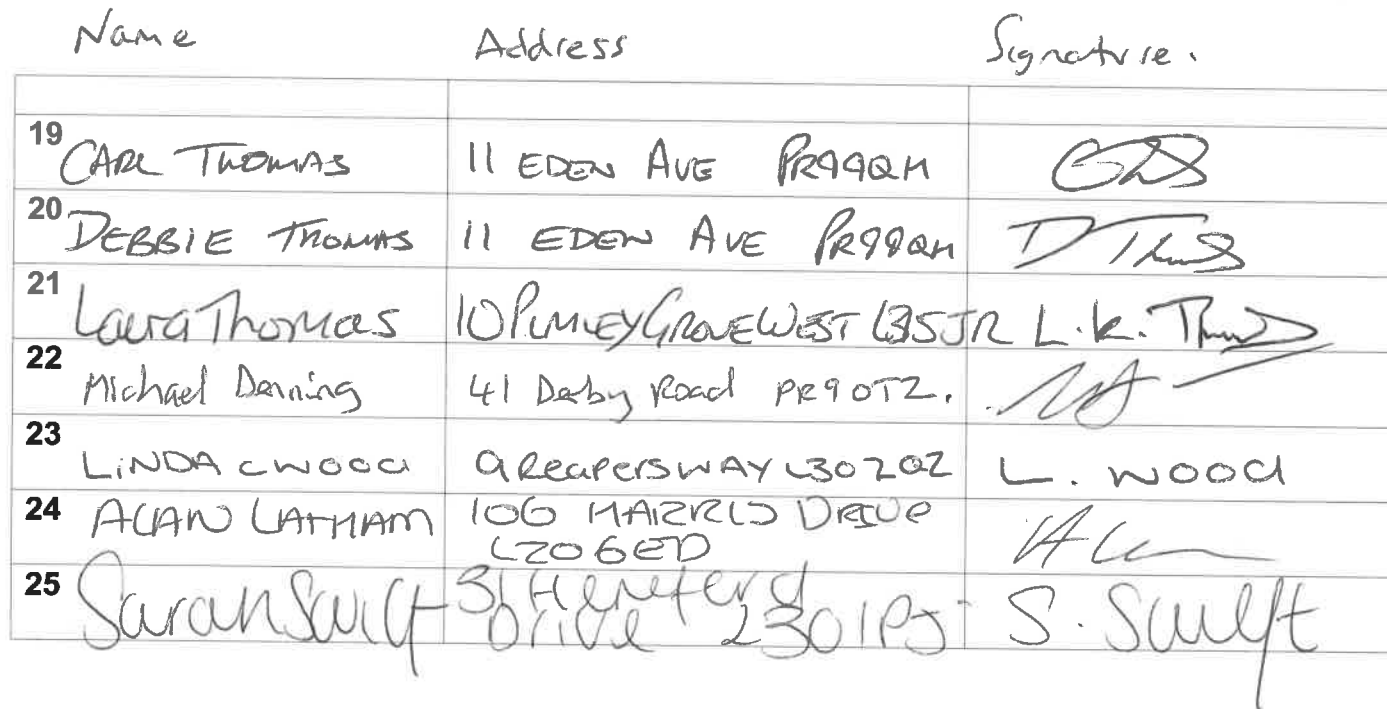 Name Address Signature.
19 CARL THOMAS 11 EDEN AVE PR99QH
20 DEBBIE THOMAS 11 EDEN AVE PR99QH D Thomas
21 Laura Thomas 10 PUMLEY GROVE WEST L35JR L.K. Thomas
22 Michael Denning 41 Derby Road PR9 0TZ.
23 LINDA C WOOD 9 Reapers WAY L30 2QZ L. WOOD
24 ALAN LATHAM 106 HARRIS DRIVE
L20 6ED
25 Sarah Swift 31 Hereford S. Swift
Drive L30 1PJ